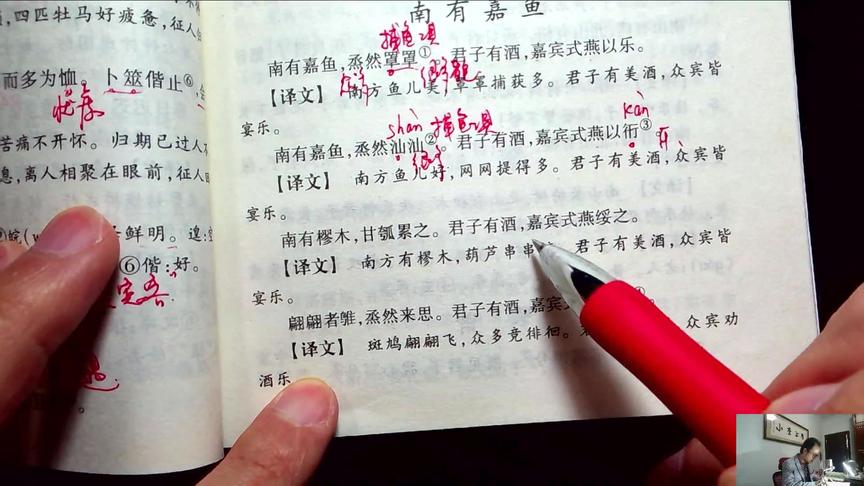 ，四匹牡马好疲惫，征人
而多为恤。卜筮偕止⑥，
忧虑
苦痛不开怀。归期已过人
息，离人相聚在眼前，征人
鲜明。遑：
⑥偕：好。
南有嘉鱼
捕鱼具
南有嘉鱼，烝然罩罩①。君子有酒，嘉宾式燕以乐。
众多
【译文】 南方鱼儿美，罩罩捕获多。君子有美酒，众宾皆
宴乐。
shàn 捕鱼具 kàn
南有嘉鱼，烝然汕汕②。君子有酒，嘉宾式燕以衎③。
【译文】 南方鱼儿好，网网提得多。君子有美酒，众宾皆
宴乐。
南有樛木，甘瓠累之。君子有酒，嘉宾式燕绥之。
【译文】 南方有樛木，葫芦串串 君子有美酒，众宾皆
宴乐。
翩翩者鵻，烝然来思。君子有酒，嘉宾
【译文】 斑鸠翩翩飞，众多竞徘徊。 众宾劝
酒乐